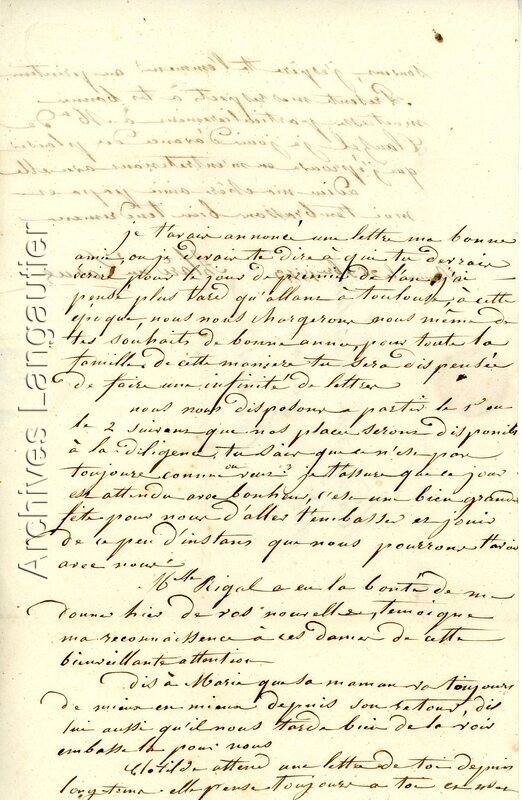 je t'avais annoncé une lettre ma bonne
amie ou je devais te dire a qui tu devrais
écrire pour le jour de premier de l'an, j'ai
pensé plus tard qu'allant a toulouse, à cette
epoque, nous nous chargerons nous même de
tes souhaits de bonne année, pour toute la
famille, de cette maniere tu sera dispensée
de faire une infinité de lettres
nous nous disposons a partir le 1er ou
le 2 suivant que nos place seront disponible
à la diligence, tu sais que ce n'est pas
toujours comme on veut, je t'assure que ce jour
est attendu avec bonheur, c'est une bien grande
fête pour nous d'aller t'embasser et jouir
de ce peu d'instans que nous pourrons t'avoir
avec nous
Melle Rigal a eu la bonté de me
donner hier de vos nouvelles, temoigne
ma reconnaissence à ces dames de cette
bienveillante attention
dis à Marie que sa maman va toujours
de mieux en mieux depuis son retour, dis
lui aussi qu'il nous tarde bien de la voir
embasse la pour nous
Clotilde attend une lettre de toi depuis
longtems elle pense toujours a toi
Archives Langautier